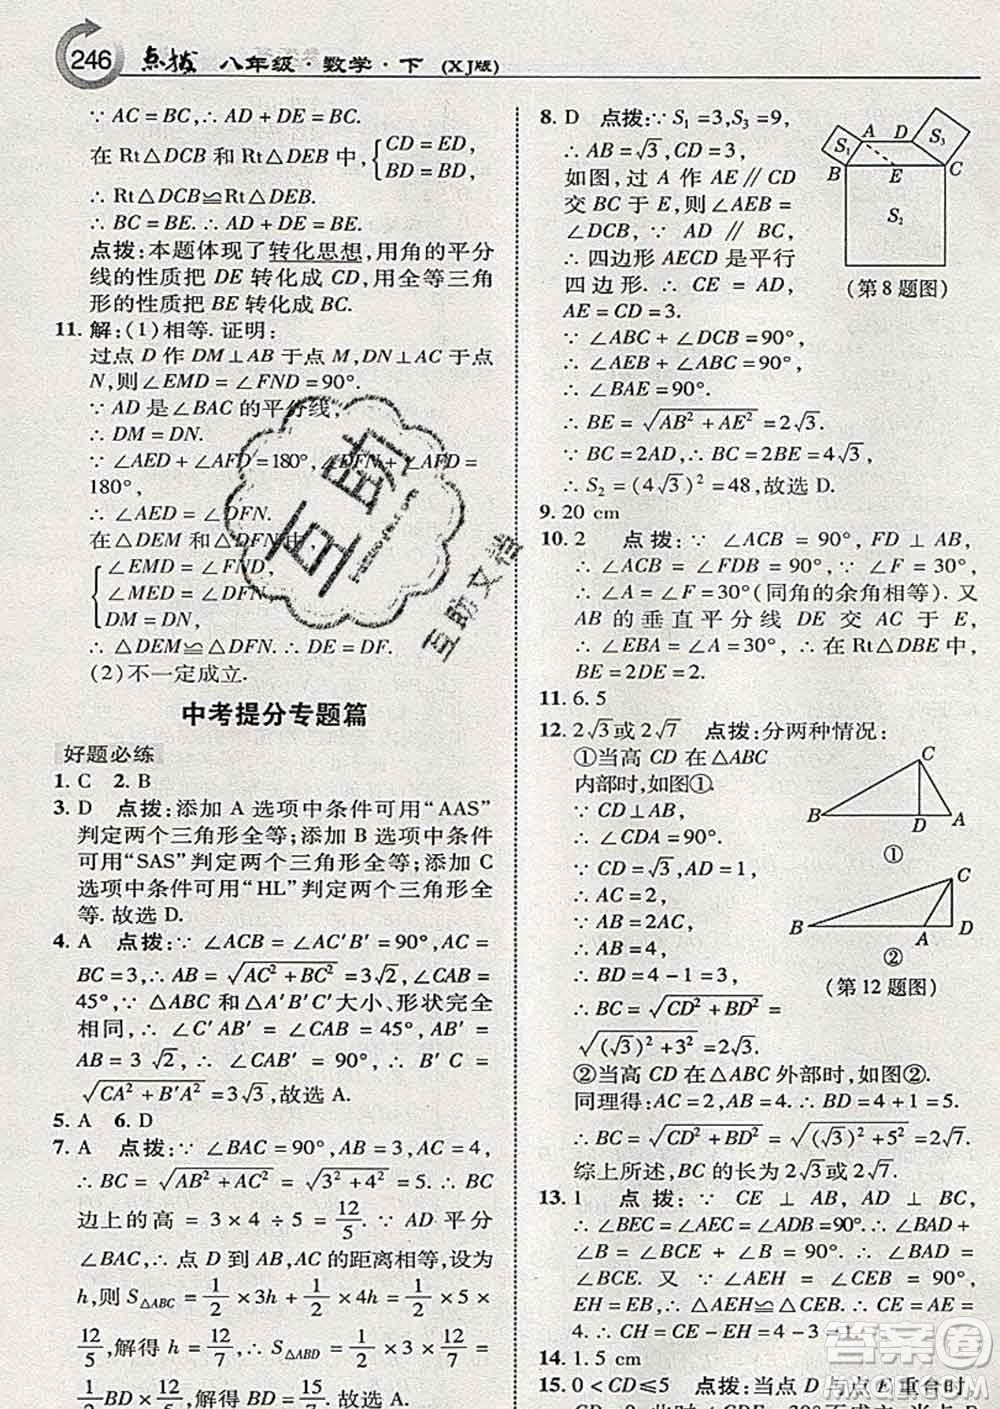 246 点拨 八年级·数学·下 (XJ版)
∵ AC = BC,∴ AD + DE = AD + CD = AC = BC.
在 Rt△DCB 和 Rt△DEB 中,
CD = ED,
BD = BD,
∴ Rt△DCB≌Rt△DEB.
∴ BC = BE. ∴ AD + DE = BE.
点拨:本题体现了转化思想,用角的平分
线的性质把 DE 转化成 CD,用全等三角
形的性质把 BE 转化成 BC.
11. 解:(1)相等. 证明:
过点 D 作 DM⊥AB 于点 M,DN⊥AC 于点
N,则∠EMD = ∠FND = 90°.
∵ AD 是∠BAC 的平分线,
∴ DM = DN.
∵ ∠AED + ∠AFD = 180°, ∠DFN + ∠AFD =
180°,
∴ ∠AED = ∠DFN.
在△DEM 和△DFN 中,
∠EMD = ∠FND,
∠MED = ∠DFN,
DM = DN,
∴ △DEM≌△DFN. ∴ DE = DF.
(2)不一定成立.
中考提分专题篇
好题必练
1. C 2. B
3. D 点拨:添加 A 选项中条件可用“AAS”
判定两个三角形全等;添加 B 选项中条件
可用“SAS”判定两个三角形全等;添加 C
选项中条件可用“HL”判定两个三角形全
等. 故选 D.
4. A 点拨:∵ ∠ACB = ∠AC′B′ = 90°,AC =
BC = 3,∴ AB = √(AC² + BC²) = 3√2,∠CAB =
45°,∵ △ABC 和△AB′C′大小、形状完全
相同,∴ ∠C′AB′ = ∠CAB = 45°,AB′ =
AB = 3√2,∴ ∠CAB′ = 90°,∴ B′C =
√(CA² + B′A²) = 3√3,故选 A.
5. A 6. D
7. A 点拨:∵ ∠BAC = 90°,AB = 3,AC = 4,
∴ BC = √(AB² + AC²) = √(3² + 4²) = 5. ∴ BC
边上的高 = 3 × 4 ÷ 5 = 12/5. ∵ AD 平分
∠BAC,∴ 点 D 到 AB,AC 的距离相等,设为
h,则 S△ABC = 1/2 × 3h + 1/2 × 4h = 1/2 × 5 ×
12/5,解得 h = 12/7,∴ S△ABD = 1/2 × 3 × 12/7 =
1/2 BD × 12/5,解得 BD = 15/7. 故选 A.
8. D 点拨:∵ S₁ = 3,S₃ = 9,
∴ AB = √3,CD = 3.
如图,过 A 作 AE∥CD
交 BC 于 E,则∠AEB =
∠DCB, ∵ AD ∥ BC,
∴ 四边形 AECD 是平行
四边形. ∴ CE = AD,
AE = CD = 3.
∵ ∠ABC + ∠DCB = 90°,
∴ ∠AEB + ∠ABC = 90°,
∴ ∠BAE = 90°.
∴ BE = √(AB² + AE²) = 2√3.
∵ BC = 2AD,∴ BC = 2BE = 4√3.
∴ S₂ = (4√3)² = 48,故选 D.
S₁ A D S₃
B E C
S₂
(第 8 题图)
9. 20 cm
10. 2 点拨:∵ ∠ACB = 90°,FD ⊥ AB,
∴ ∠ACB = ∠FDB = 90°. ∵ ∠F = 30°,
∴ ∠A = ∠F = 30°(同角的余角相等). 又
AB 的垂直平分线 DE 交 AC 于 E,
∴ ∠EBA = ∠A = 30°,∴ 在 Rt△DBE 中,
BE = 2DE = 2.
11. 6.5
12. 2√3或 2√7 点拨:分两种情况:
①当高 CD 在△ABC
内部时,如图①.
∵ CD⊥AB,
∴ ∠CDA = 90°.
∵ CD = √3,AD = 1,
∴ AC = 2.
∵ AB = 2AC,
∴ AB = 4,
∴ BD = 4 - 1 = 3.
∴ BC = √(CD² + BD²) =
√((√3)² + 3²) = 2√3.
②当高 CD 在△ABC 外部时,如图②.
同理得:AC = 2,AB = 4,∴ BD = 4 + 1 = 5.
∴ BC = √(CD² + BD²) = √((√3)² + 5²) = 2√7.
综上所述,BC 的长为 2√3或 2√7.
C
B D A
①
C
B A D
②
(第 12 题图)
13. 1 点拨:∵ CE ⊥ AB, AD ⊥ BC,
∴ ∠BEC = ∠AEC = ∠ADB = 90°. ∴ ∠BAD +
∠B = ∠B + ∠BCE = 90°, ∴ ∠BAD =
∠BCE. 又 ∵ ∠AEH = ∠CEB = 90°,
EH = EB,∴ △AEH≌△CEB,∴ CE = AE =
4. ∴ CH = CE - EH = 4 - 3 = 1.
14. 1.5 cm
15. 0 < CD ≤ 5 点拨:当点 D 与点 E 重合时,
互助
互助文库
答案圈
MXQE.COM